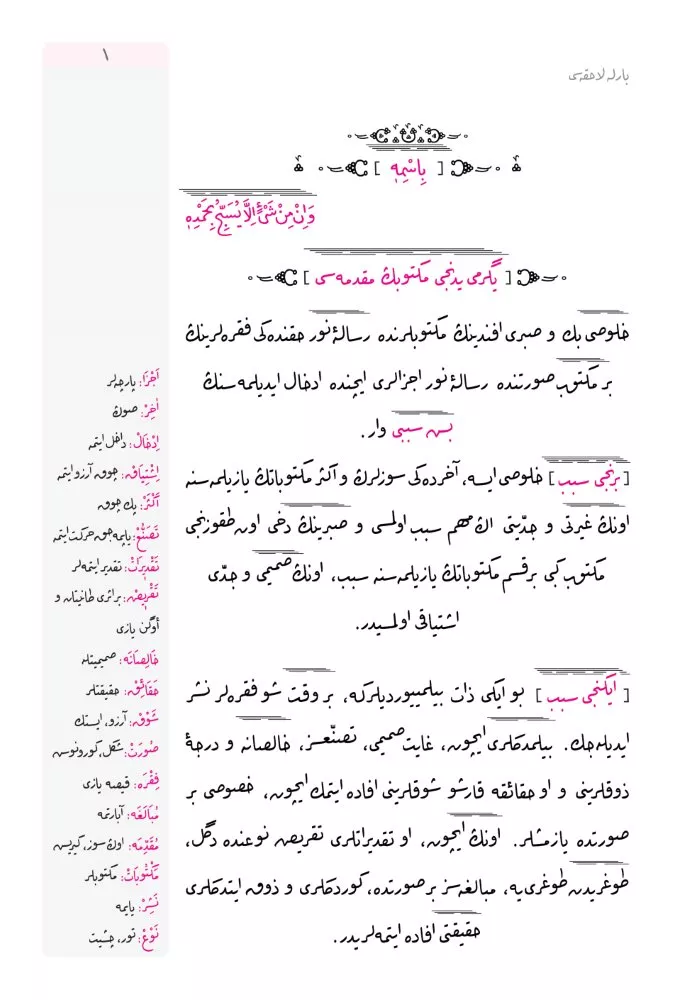 ١
بارلە لاحقەسی
[ بِاسْمِهِ ]
وَاِنْ مِنْ شَيْءٍ اِلَّا يُسَبِّحُ بِحَمْدِهِ
[ یگرمی یدنجی مكتوبڭ مقدمەسی ]
خلوصی بك و صبری افندینڭ مكتوبلرنده رسالۀ نور حقنده‌كی فقره‌لرینڭ
بر مكتوب صورتنده رسالۀ نور اجزالری ایچنده ادخال ایدیلمه‌سنڭ
بش سببی وار.
[ برنجی سبب ] خلوصی ایسه، آخرده‌كی سوزلرڭ و اكثر مكتوباتڭ یازیلمه‌سنه
اونڭ غیرتی و جدّیتی اڭ مهم سبب اولمسی و صبرینڭ دخی اون طقوزنجی
مكتوب كبی بر قسم مكتوباتڭ یازیلمه‌سنه سبب، اونڭ صمیمی و جدّی
اشتیاقی اولمسیدر.
[ ایكنجی سبب ] بو ایكی ذات بیلمییوردیلركه، بر وقت شو فقره‌لر نشر
ایدیله‌جك. بیلمدكلری ایچون، غایت صمیمی، تصنّعسز، خالصانه و درجۀ
ذوقلرینی و او حقائقه قارشو شوقلرینی افاده ایتمك ایچون، خصوصی بر
صورتده یازمشلر. اونڭ ایچون، او تقدیراتلری تقریض نوعنده دگل،
طوغریدن طوغری‌یه، مبالغه‌سز بر صورتده، كوردكلری و ذوق ایتدكلری
حقیقتی افاده ایتمه‌لریدر.
اَجْزَا: پارچه‌لر
اٰخِرْ: صوڭ
اِدْخَالْ: داخل ایتمه
اِشْتِيَاقْ: چوق آرزو ایتمه
اَكْثَرْ: پك چوق
تَصَنُّعْ: یاپمه‌جق حركت ایتمه
تَقْدِيرَاتْ: تقدیر ایتمه‌لر
تَقْرِيضْ: بر اثری طانیتان و
اوگن یازی
خَالِصَانَه: صمیمیتله
حَقَائِقْ: حقیقتلر
شَوْقْ: آرزو، ایستك
صُورَتْ: شكل، كورونوش
فِقْرَه: قیصه یازی
مُبَالَغَه: آبارتمه
مُقَدِّمَه: اوڭ سوز، گیریش
مَكْتُوبَاتْ: مكتوبلر
نَشِرْ: یایمه
نَوْعْ: تور، چشیت